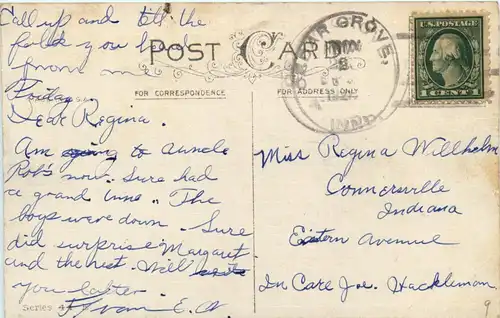 Call up and tell the
folks you had
from m
Friday.
POST CARD
CEDAR GROVE
NOV
IND.
U.S. POSTAGE
1 CENT 1
FOR CORRESPONDENCE
FOR ADDRESS ONLY
Dear Regina.
Am going to auncle
Rob's now. Sure had
a grand time. The
boys were down. Sure
did surprise Margaret
and the rest. Will write
you latter.
From E. W
Series
Miss Regina Willhelm
Connersville
Indiana
Eastern Avenue
In Care Joe. Hackleman
9